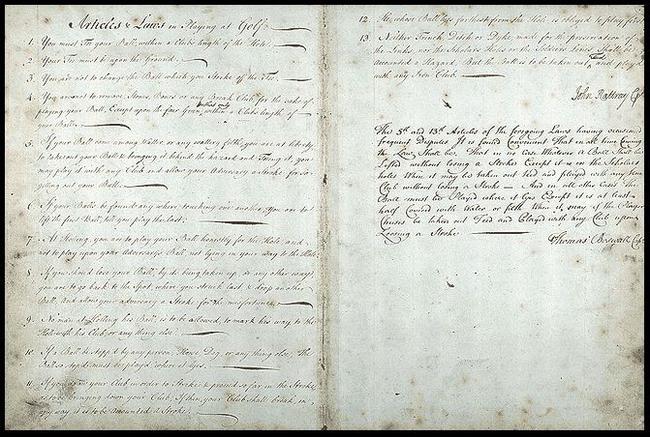 Articles & Laws in Playing at Golf
1. You must Tee your Ball, within a Clubs length of the Hole.
2. Your Tee must be upon the Ground.
3. You are not to change the Ball which you Stroke off the Tee.
4. You are not to remove Stones, Bones or any Break Club, for the sake of
playing your Ball, Except upon the fair Green, & that only within a Clubs length of
your Ball.
5. If your Ball come among Water, or any wattery filth, you are at liberty
to take out your Ball & bringing it behind the hazard and Teeing it, you
may play it with any Club and allow your Adversary a Stroke for so
getting out your Ball.
6. If your Balls be found any where touching one another, You are to
lift the first Ball, till you play the last.
7. At Holling, you are to play your Ball honestly for the Hole, and
not to play upon your Adversary's Ball, not lying in your way to the Hole.
8. If you should lose your Ball, by its being taken up, or any other way,
you are to go back to the Spot, where you struck last & drop another
Ball, And allow your adversary a Stroke for the misfortune.
9. No man at Holling his Ball, is to be allowed, to mark his way to the
Hole with his Club or any thing else.
10. If a Ball be stopp'd by any person, Horse, Dog, or any thing else, The
Ball so stop'd must be play'd where it lyes.
11. If you draw your Club, in order to Stroke & proceed so far in the Stroke,
as to be bringing down your Club; If then, your Club shall break, in
any way, it is to be Accounted a Stroke.
12. He, whose Ball lyes farthest from the Hole is obliged to play first.
13. Neither Trench, Ditch or Dyke, made for the preservation of
the Links, nor the Scholar's Holes or the Soldier's Lines, Shall be
accounted a Hazard. But the Ball is to be taken out, Teed and play'd
with any Iron Club.
John Rattray Cpt
The 5th and 13th Articles of the foregoing Laws having occasioned
frequent Disputes It is found Convenient That in all time Coming
the Law Shall be, That in no Case Whatever a Ball Shall be
Lifted without losing a Stroke Except it is in the Scholars
holes When it may be taken out teed and played with any Iron
Club without losing a Stroke — And in all other Cases the
Ball must be Played where it lyes Except it is at least
half Covered with Water or filth When it may if the Player
Chuses be taken out Teed and Played with any Club upon
Loosing a Stroke
Thomas Boswall Cpt